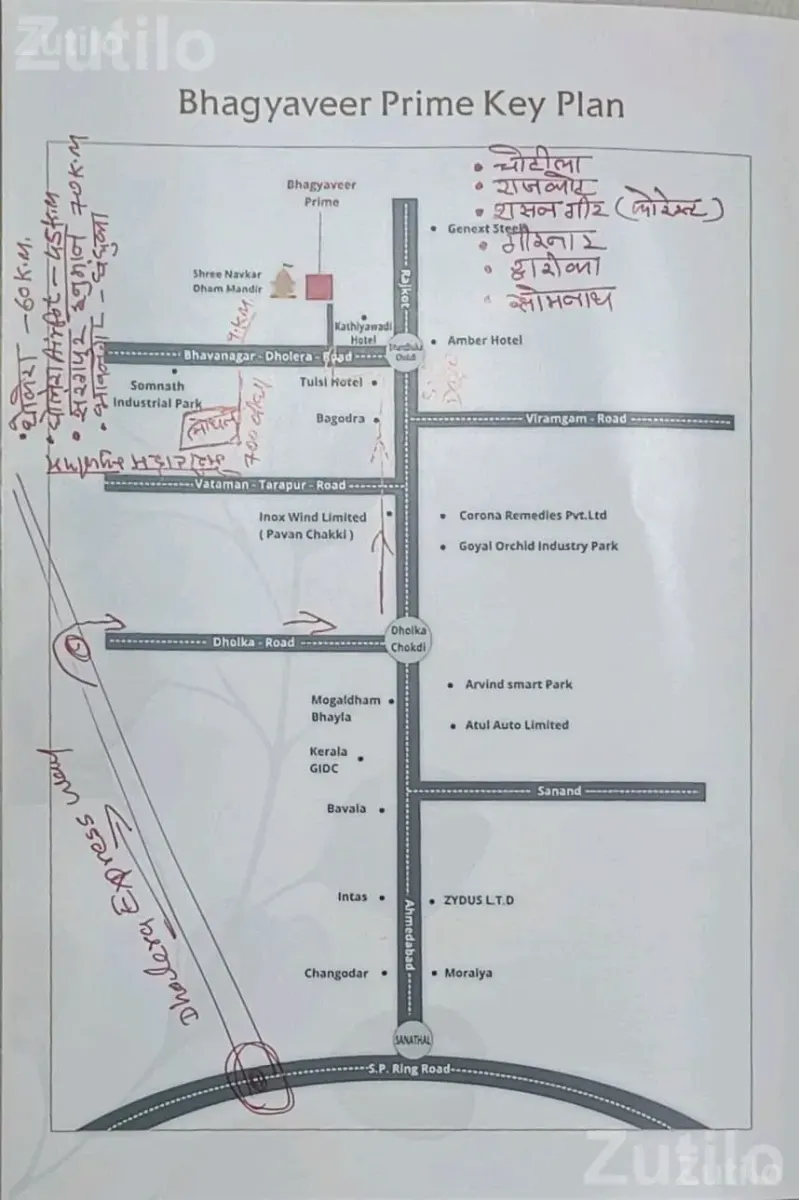 Zutilo
Zutilo
Bhagyaveer Prime Key Plan
Bhagyaveer
Prime
• चोटीला
• राजकोट
• Genext Steels
Shree Navkar
Dham Mandir
Rajkot
Kathiyawadi
Hotel
• Amber Hotel
Bhavanagar - Dholera - Road
Somnath
Industrial Park
Tulsi Hotel •
Bagodra •
Viramgam - Road
• गीरनार
• सोमनाथ
- 60 K.M.
Airport - 45 K.M
हनुमान 70 K.M
Vataman - Tarapur - Road
Inox Wind Limited
( Pavan Chakki )
• Corona Remedies Pvt.Ltd
• Goyal Orchid Industry Park
Dholka - Road
Dholka
Chokdi
Mogaldham
Bhayla
• Arvind smart Park
• Atul Auto Limited
Kerala
GIDC
Sanand
Bavala •
Dholera Express way
Intas •
• ZYDUS L.T.D
Ahmedabad
Changodar •
• Moraiya
SANATHAL
S.P. Ring Road
Zutilo
Zutilo